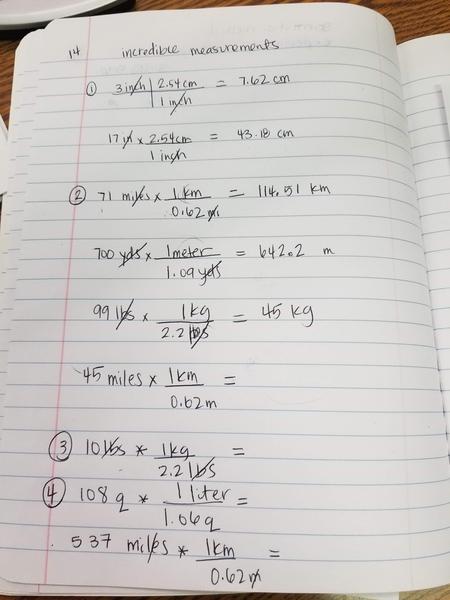 14 incredible measurements
① 3 inch | 2.54 cm = 7.62 cm
1 inch
17 in x 2.54cm = 43.18 cm
1 inch
② 71 miles x 1 km = 114.51 km
0.62 mi
700 yds x 1 meter = 642.2 m
1.09 yds
99 lbs x 1kg = 45 kg
2.2 lbs
45 miles x 1 km =
0.62 m
③ 10 lbs * 1kg =
2.2 lbs
④ 108 q * 1 liter =
1.06 q
537 miles * 1km =
0.62 m